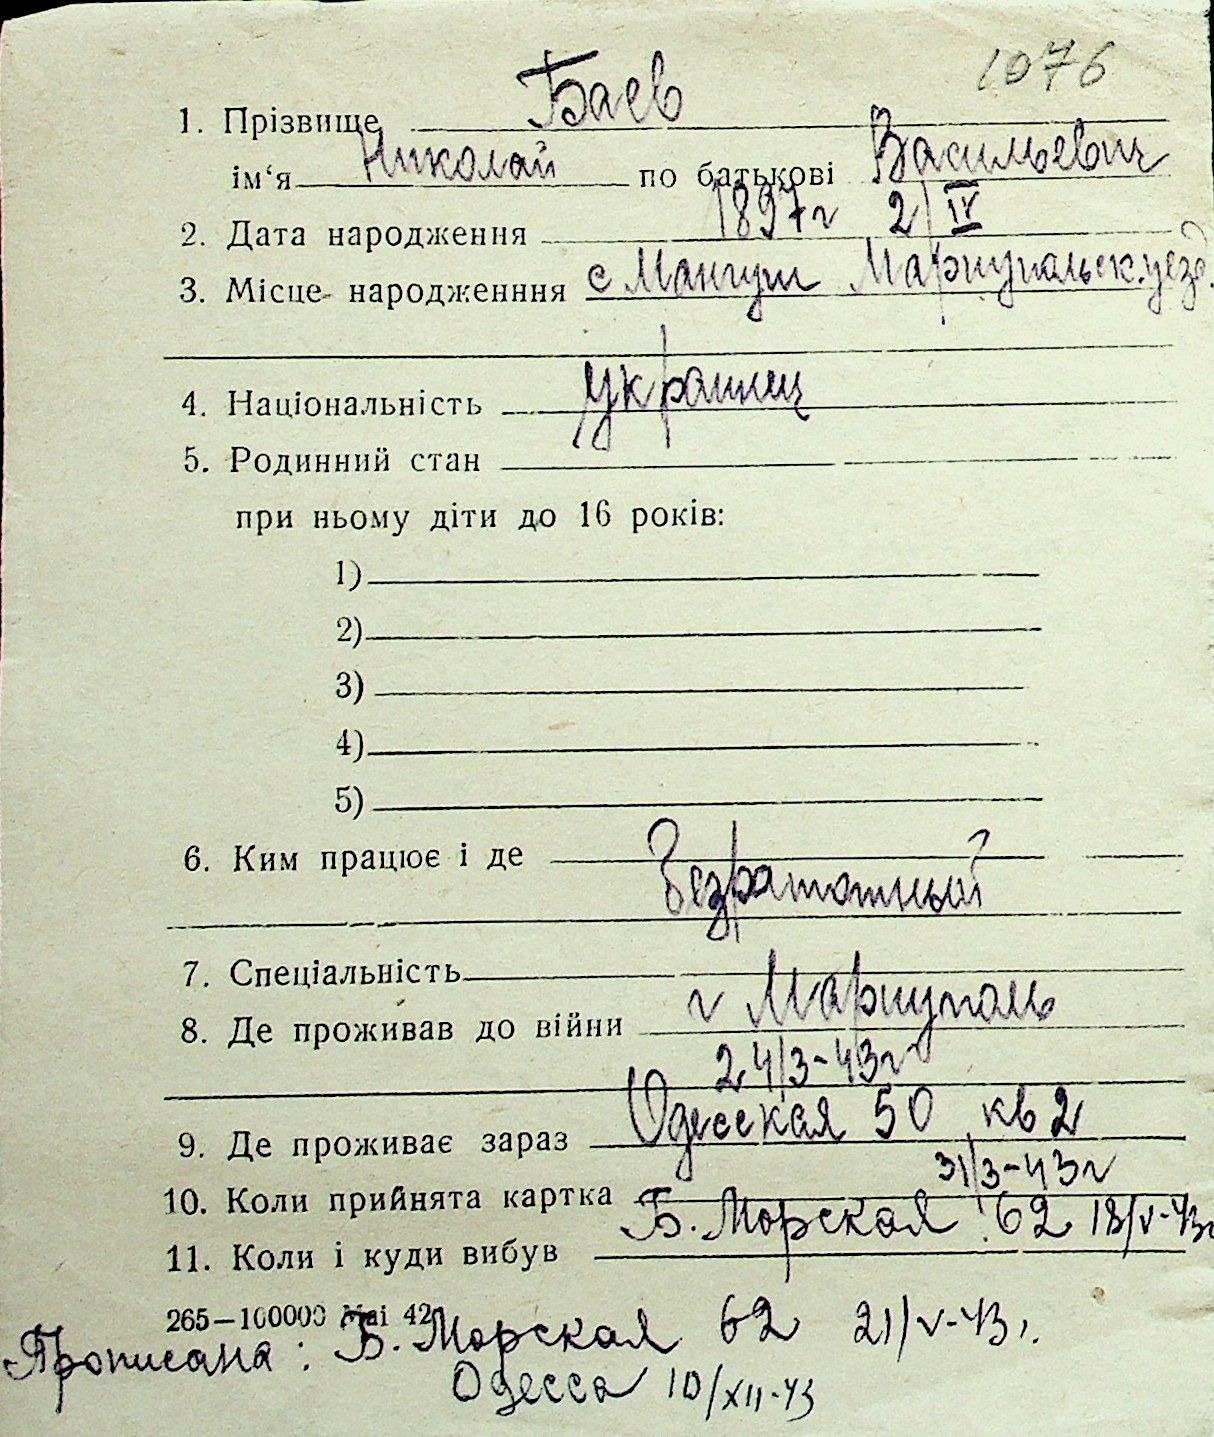 1076
1. Прізвище Баев
ім‘я Николай по батькові Васильевич
2. Дата народження 1897г 2/IV
3. Місце народженння с Мангуш Мариупольск. уезд.
4. Національність украинец
5. Родинний стан
при ньому діти до 16 років:
1)
2)
3)
4)
5)
6. Ким працює і де
Безработный
7. Спеціальність
8. Де проживав до війни г Мариуполь
24/3-43г
9. Де проживає зараз Одесская 50 кв 2
10. Коли прийнята картка 31/3-43г
11. Коли і куди вибув Б. Морская 62 18/V-43г
265—100000 Mai 42
Прописана: Б. Морская 62 21/V-43г.
Одесса 10/XII-43